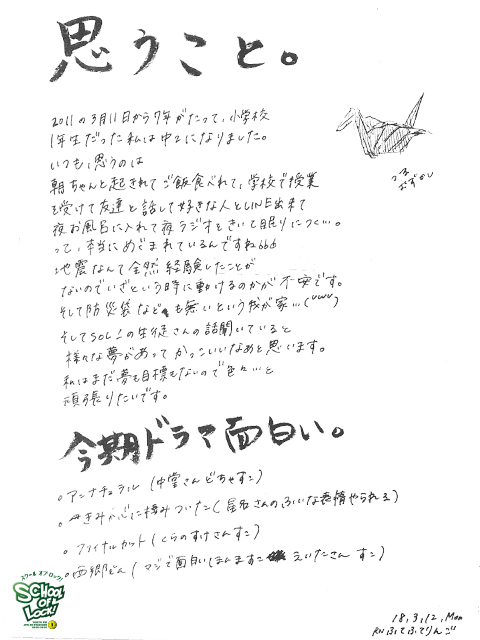 思うこと。
2011の3月11日から7年がたって、小学校
1年生だった私は中2になりました。
いつも、思うのは
朝ちゃんと起きれてご飯食べれて、学校で授業
を受けて友達と話して好きな人とLINE出来て
夜お風呂に入れて夜ラジオをきいて眠りにつく…。
って、本当にめぐまれているんですね
地震なんて全然経験したことが
ないのでいざという時に動けるのかが不安です。
そして防災袋なども無いという我が家…
そしてSOL!の生徒さんの話聞いていると
様々な夢があってかっこいいなぁと思います。
私はまだ夢も目標もないので色々…と
頑張りたいです。
つる
今期ドラマ面白い。
。アンナチュラル(中堂さんどちゃすこ)
。きみが心に棲みついた(星名さんのふいな表情やられる)
。ファイナルカット(くらのすけさんすこ)
。西郷どん(マジで面白いほんますこ えいたさんすこ)
スクールオブロック!
SCHOOL
OF
LOCK!
18.3.12.Mon
RNふてふてりんご